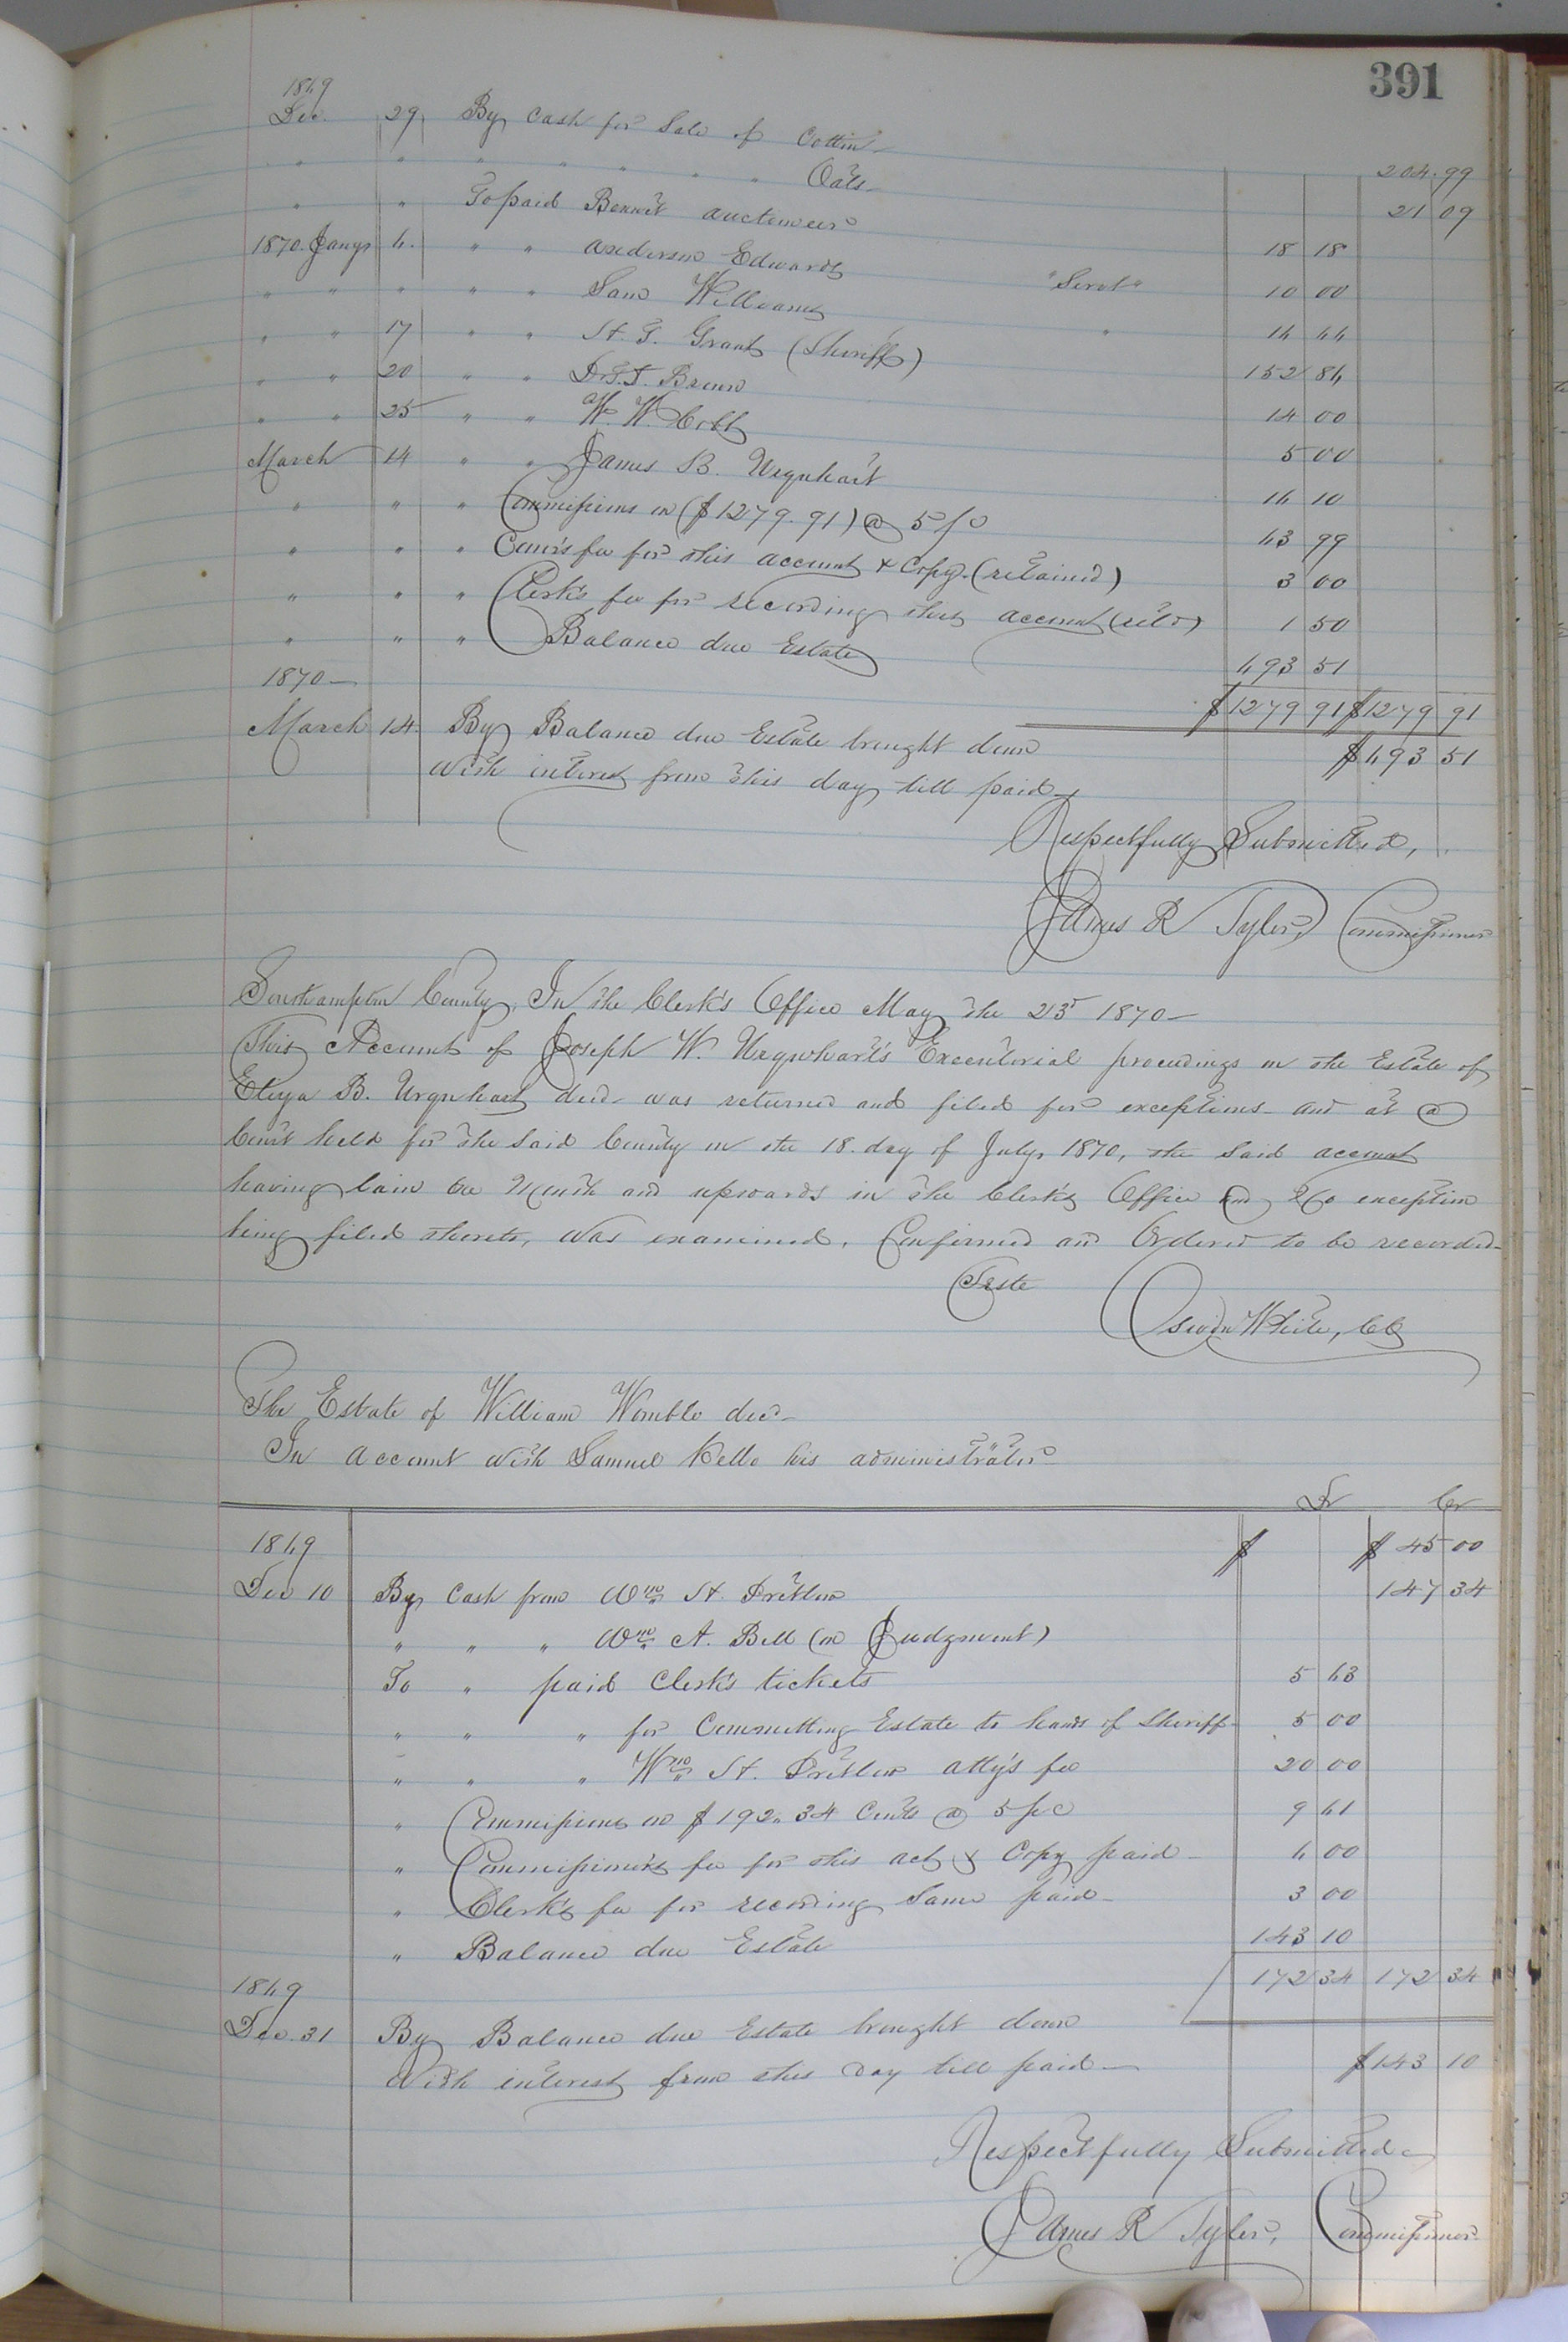 391
1869
Dec. 29 By Cash for Sale of Cotton 204.99
" " " " " " " Oats 21 09
" " To paid Bennet auctioneer 18 18
1870. Jany 6. " " Anderson Edwards "Servt" 10 00
" " " " " Sam Williams " 16 66
" " 17 " " St. G. Grant (Sheriff) 152 86
" " 20 " " Dr. T. T. Brown 14 00
" " 25 " " W. W. Cobb 5 00
March 14 " " James B. Urquhart 16 10
" " " Commissions on ($1279.91) @ 5 p c 63 99
" " " Com'rs fee for this account & Copy (retained) 3 00
" " " Clerk's fee for recording this account (ret'd) 1 50
" " " Balance due Estate 693 51
1870 $1279 91 $1279 91
March 14. By Balance due Estate brought down $693 51
with interest from this day till paid
Respectfully Submitted,
James R Tyler, Commissioner
Southampton County, In the Clerk's Office May the 23d 1870
This Account of Joseph W. Urquhart's Executorial proceedings on the Estate of
B. Urquhart decd was returned and filed for exceptions and at a
Court held for the said County on the 18. day of July, 1870, the said account
having lain one Month and upwards in the Clerk's Office and No exception
being filed thereto, was examined, Confirmed and Ordered to be recorded
Teste
White, CC
The Estate of William Womble decd
In account with Samuel Kello his administrator
Dr Cr
1869 $ $ 45 00
Dec 10 By Cash from Wm St. Pretlow 147 34
" " " Wm A. Bell (on Judgment)
To " paid Clerk's tickets 5 63
" " " for Committing Estate to hands of Sheriff 5 00
" " " Wm St. Pretlow atty's fee 20 00
" Commissions on $192.34 Cents @ 5 p c 9 61
" Commissioner's fee for this act & Copy paid 6 00
" Clerk's fee for recording Same paid 3 00
" Balance due Estate 143 10
1869 172 34 172 34
Dec. 31 By Balance due Estate brought down $143 10
With interest from this day till paid
Respectfully Submitted
James R Tyler, Commissioner